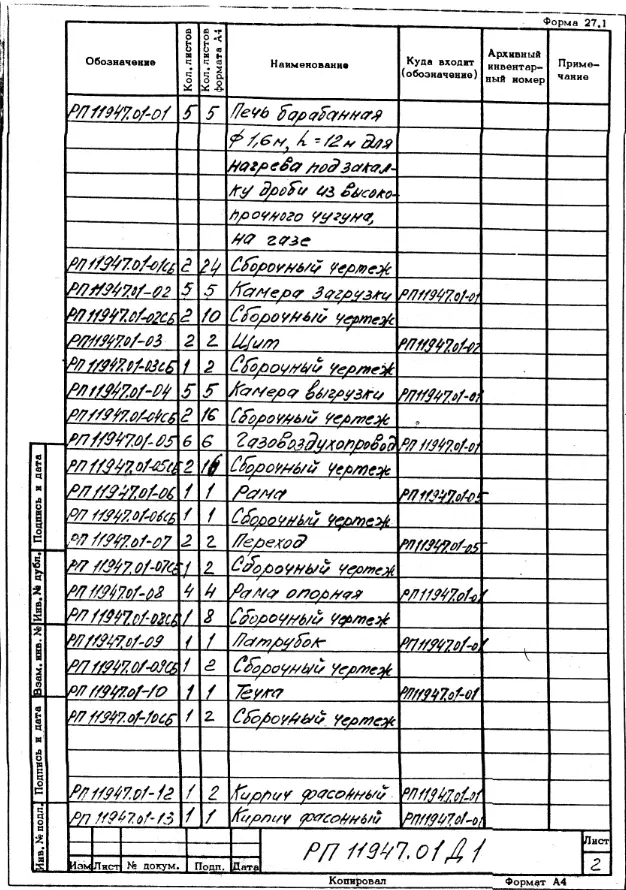 Форма 27.1
Обозначение Кол. листов Кол. листов формата А4 Наименование Куда входит (обозначение) Архивный инвентарный номер Примечание
РП11947.01-01 5 5 Печь барабанная
ф 1,6м, h=12м для
нагрева под закал-
ку дроби из высоко-
прочного чугуна,
на газе
РП11947.01-01СБ 2 24 Сборочный чертеж
РП11947.01-02 5 5 Камера загрузки РП11947.01-01
РП11947.01-02СБ 2 10 Сборочный чертеж
РП11947.01-03 2 2 Щит РП11947.01-02
РП11947.01-03СБ 1 2 Сборочный чертеж
РП11947.01-04 5 5 Камера выгрузки РП11947.01-01
РП11947.01-04СБ 2 16 Сборочный чертеж
РП11947.01-05 6 6 Газовоздухопровод РП11947.01-01
РП11947.01-05СБ 2 16 Сборочный чертеж
РП11947.01-06 1 1 Рама РП11947.01-05
РП11947.01-06СБ 1 1 Сборочный чертеж
РП11947.01-07 2 2 Переход РП11947.01-05
РП11947.01-07СБ 1 2 Сборочный чертеж
РП11947.01-08 4 4 Рама опорная РП11947.01-01
РП11947.01-08СБ 1 8 Сборочный чертеж
РП11947.01-09 1 1 Патрубок РП11947.01-01
РП11947.01-09СБ 1 2 Сборочный чертеж
РП11947.01-10 1 1 Течка РП11947.01-01
РП11947.01-10СБ 1 2 Сборочный чертеж
РП11947.01-12 1 2 Кирпич фасонный РП11947.01-01
РП11947.01-13 1 1 Кирпич фасонный РП11947.01-01
Подпись и дата
Инв. № дубл.
Взам. инв. №
Подпись и дата
Инв. № подл.
РП 11947.01 Д1
Лист
2
Изм Лист № докум. Подп. Дата
Копировал Формат А4